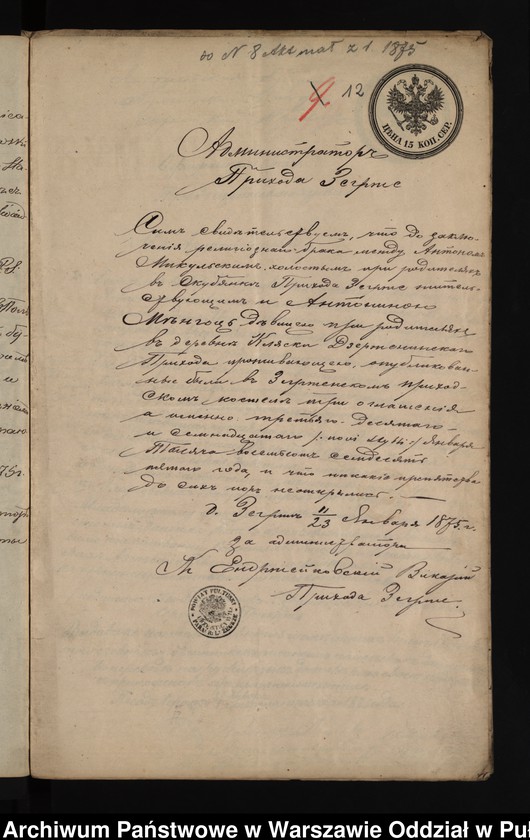 do N 8 Akt mał z r. 1875
12
ЦѢНА 15 КОП. СЕР.
Администраторъ
Прихода Зегрже
Симъ свидѣтельствуемъ, что до заклю-
ченія религіознаго брака между Антономъ
Микульскимъ, холостымъ при родителяхъ
въ Скубянкѣ Прихода Зегрже житель-
ствующимъ и Антониною
дѣвицею при родителяхъ
въ деревнѣ Кляски Дзержонинскаго
Прихода проживающею, опубликован-
ны были въ Зегрженскомъ приход-
скомъ костелѣ три оглашенія
а именно третьяго, десятаго
и семнадцатаго /: novi styli :/ Января
Тысяча восемьсотъ семдесятъ
пятаго года, и что никакія препятства
до сихъ поръ неоткрылись.
д. Зегржъ 11/23 Января 1875 г.
за администратора
К Ендржейковскій Викарій
Прихода Зегрже.
POWIAT PUŁTUSKI
Archiwum Państwowe w Warszawie Oddział w Puł